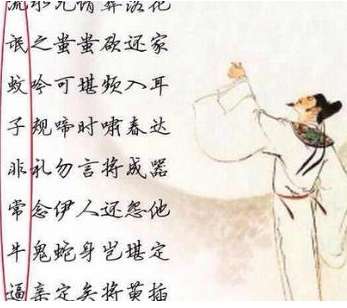 流水凡情葬落花
氓之蚩蚩欲还家
蚊吟可堪频入耳
子规啼时啸春达
非礼勿言将成器
常念伊人还怨他
牛鬼蛇身岂堪定
逼亲定矣将黄插